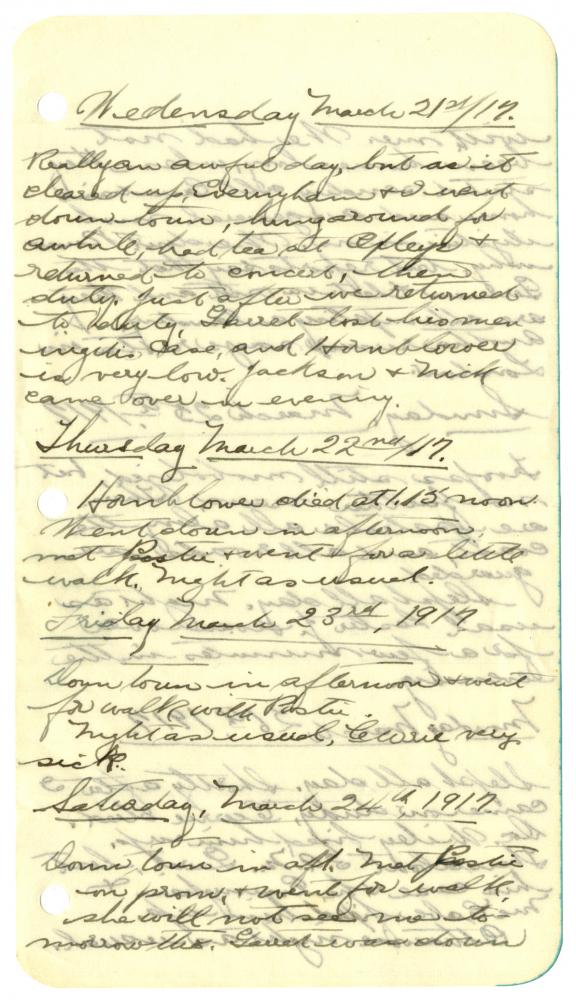 Wedensday March 21st/17.
Really an awful day, but as it
cleared up, Everingham & I went
down town, hung around for
awhile, had tea at &
returned to concert, then
duty. Just after we returned
to duty, Garret lost his men
ingitis Case, and Hornblower
is very low. Jackson & Nick
came over in evening.
Thursday March 22nd/17.
Hornblower died at 1.15 noon.
Went down in afternoon,
met & went for a little
walk. Night as usual.
Friday March 23rd, 1917
Down town in afternoon & went
for walk with
Night as usual, very
sick.
Saturday, March 24th, 1917
Down town in aft. Met
on prom, & went for walk,
she will not see me to-
morrow tho. Garret was down